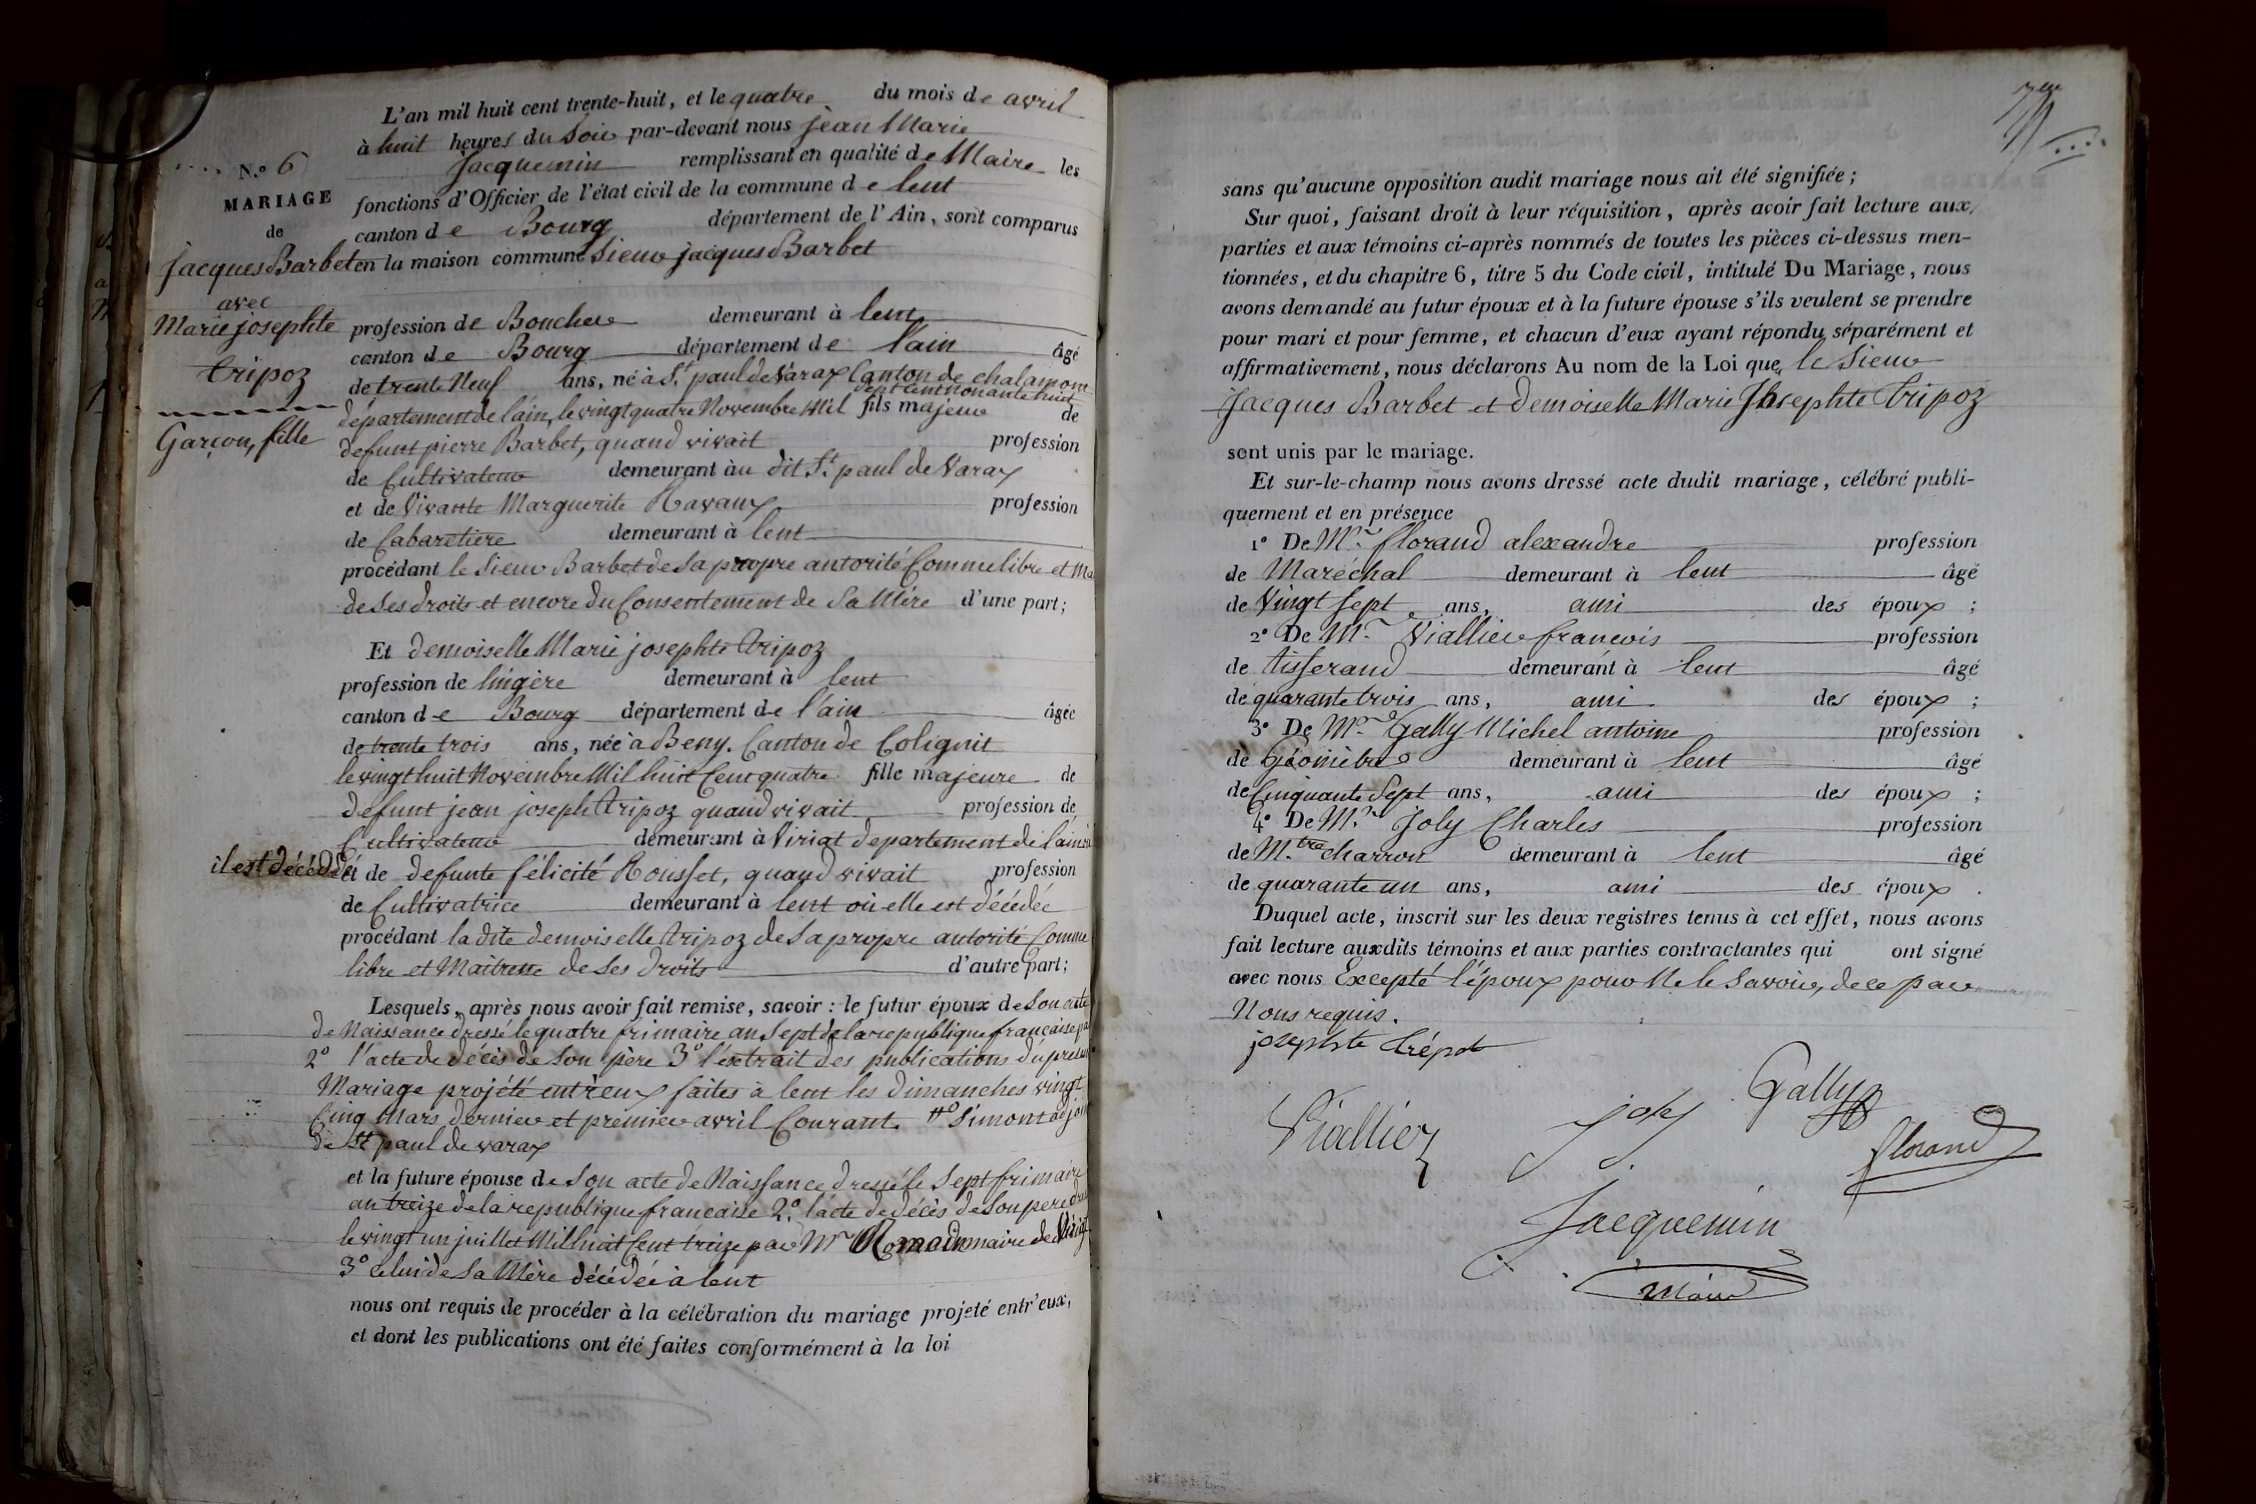 L'an mil huit cent trente-huit, et le quatre du mois de avril
à huit heures du Soir par-devant nous jean Marie
Jacquemin remplissant en qualité de Maire les
fonctions d'Officier de l'état civil de la commune de lent
canton de Bourg département de l'Ain, sont comparus
en la maison commune Sieur jacques Barbet
N.o 6
MARIAGE
de
jacques Barbet
avec
Marie josephte
tripoz
Garçon, fille
profession de Boucher demeurant à lent
canton de Bourg département de lain âgé
de trente Neuf ans, né à St. paul de Varax Canton de chalamont
sept cent nonante huit
département de l'ain, le vingt quatre Novembre Mil fils majeur de
defunt pierre Barbet, quand vivait profession
de Cultivateur demeurant àu dit St. paul de Varax
et de Vivante Marguerite Ravaux profession
de Cabaretiere demeurant à lent
procédant le Sieur Barbet de Sa propre autorité Comme libre et Ma
de Ses droits et encore du Consentement de Sa Mère d'une part;
Et demoiselle Marie josephte tripoz
profession de lingère demeurant à lent
canton de Bourg département de l'ain âgée
de trente trois ans, née à Beny. Canton de Colignit
le vingt huit Novembre Mil huit Cent quatre fille majeure de
defunt jean joseph tripoz quand vivait profession de
Cultivateur demeurant à Viriat departement de l'ain
il est décédé et de defunte félicité Rousset, quand vivait profession
de Cultivatrice demeurant à lent où elle est décédée
procédant la dite demoiselle tripoz de Sa propre autorité Comme
libre et Maitresse de Ses droits d'autre part;
Lesquels, après nous avoir fait remise, savoir : le futur époux de Son acte
de Naissance dressé le quatre frimaire an Sept de la republique française pa
2o l'acte de décès de Son père 3o l'extrait des publications du present
Mariage projété entr'eux faites à lent les dimanches vingt
Cinq Mars dernier et premier avril Courant. Simont adjoin
de St paul de varax
et la future épouse de Son acte de Naissance dressé le Sept frimaire
an treize de la republique francaise 2.o l'acte de décès de Son pere
le vingt un juillet Mil huit Cent treize par Mr maire de Viriat
3o celui de Sa Mère décédée à lent
nous ont requis de procéder à la célébration du mariage projeté entr'eux,
et dont les publications ont été faites conformément à la loi
sans qu'aucune opposition audit mariage nous ait été signifiée;
Sur quoi, faisant droit à leur réquisition, après avoir fait lecture aux
parties et aux témoins ci-après nommés de toutes les pièces ci-dessus men-
tionnées, et du chapitre 6, titre 5 du Code civil, intitulé Du Mariage, nous
avons demandé au futur époux et à la future épouse s'ils veulent se prendre
pour mari et pour femme, et chacun d'eux ayant répondu séparément et
affirmativement, nous déclarons Au nom de la Loi que le Sieur
Jacques Barbet et demoiselle Marie Josephte tripoz
sont unis par le mariage.
Et sur-le-champ nous avons dressé acte dudit mariage, célébré publi-
quement et en présence
1o De Mr. florand alexandre profession
de Maréchal demeurant à lent âgé
de Vingt Sept ans, ami des époux ;
2o De Mr. Viallier francois profession
de tisserand demeurant à lent âgé
de quarante trois ans, ami des époux ;
3o De Mr. Gally Michel antoine profession
de Géomètre demeurant à lent âgé
de Cinquante Sept ans, ami des époux ;
4o De Mr. Joly Charles profession
de M.tre charron demeurant à lent âgé
de quarante un ans, ami des époux .
Duquel acte, inscrit sur les deux registres tenus à cet effet, nous avons
fait lecture auxdits témoins et aux parties contractantes qui ont signé
avec nous Excepté l'époux pour Ne le Savoir, de ce par
Nous requis.
josephte trépot
Gally
Viallier
joly
florand
Jacquemin
Maire